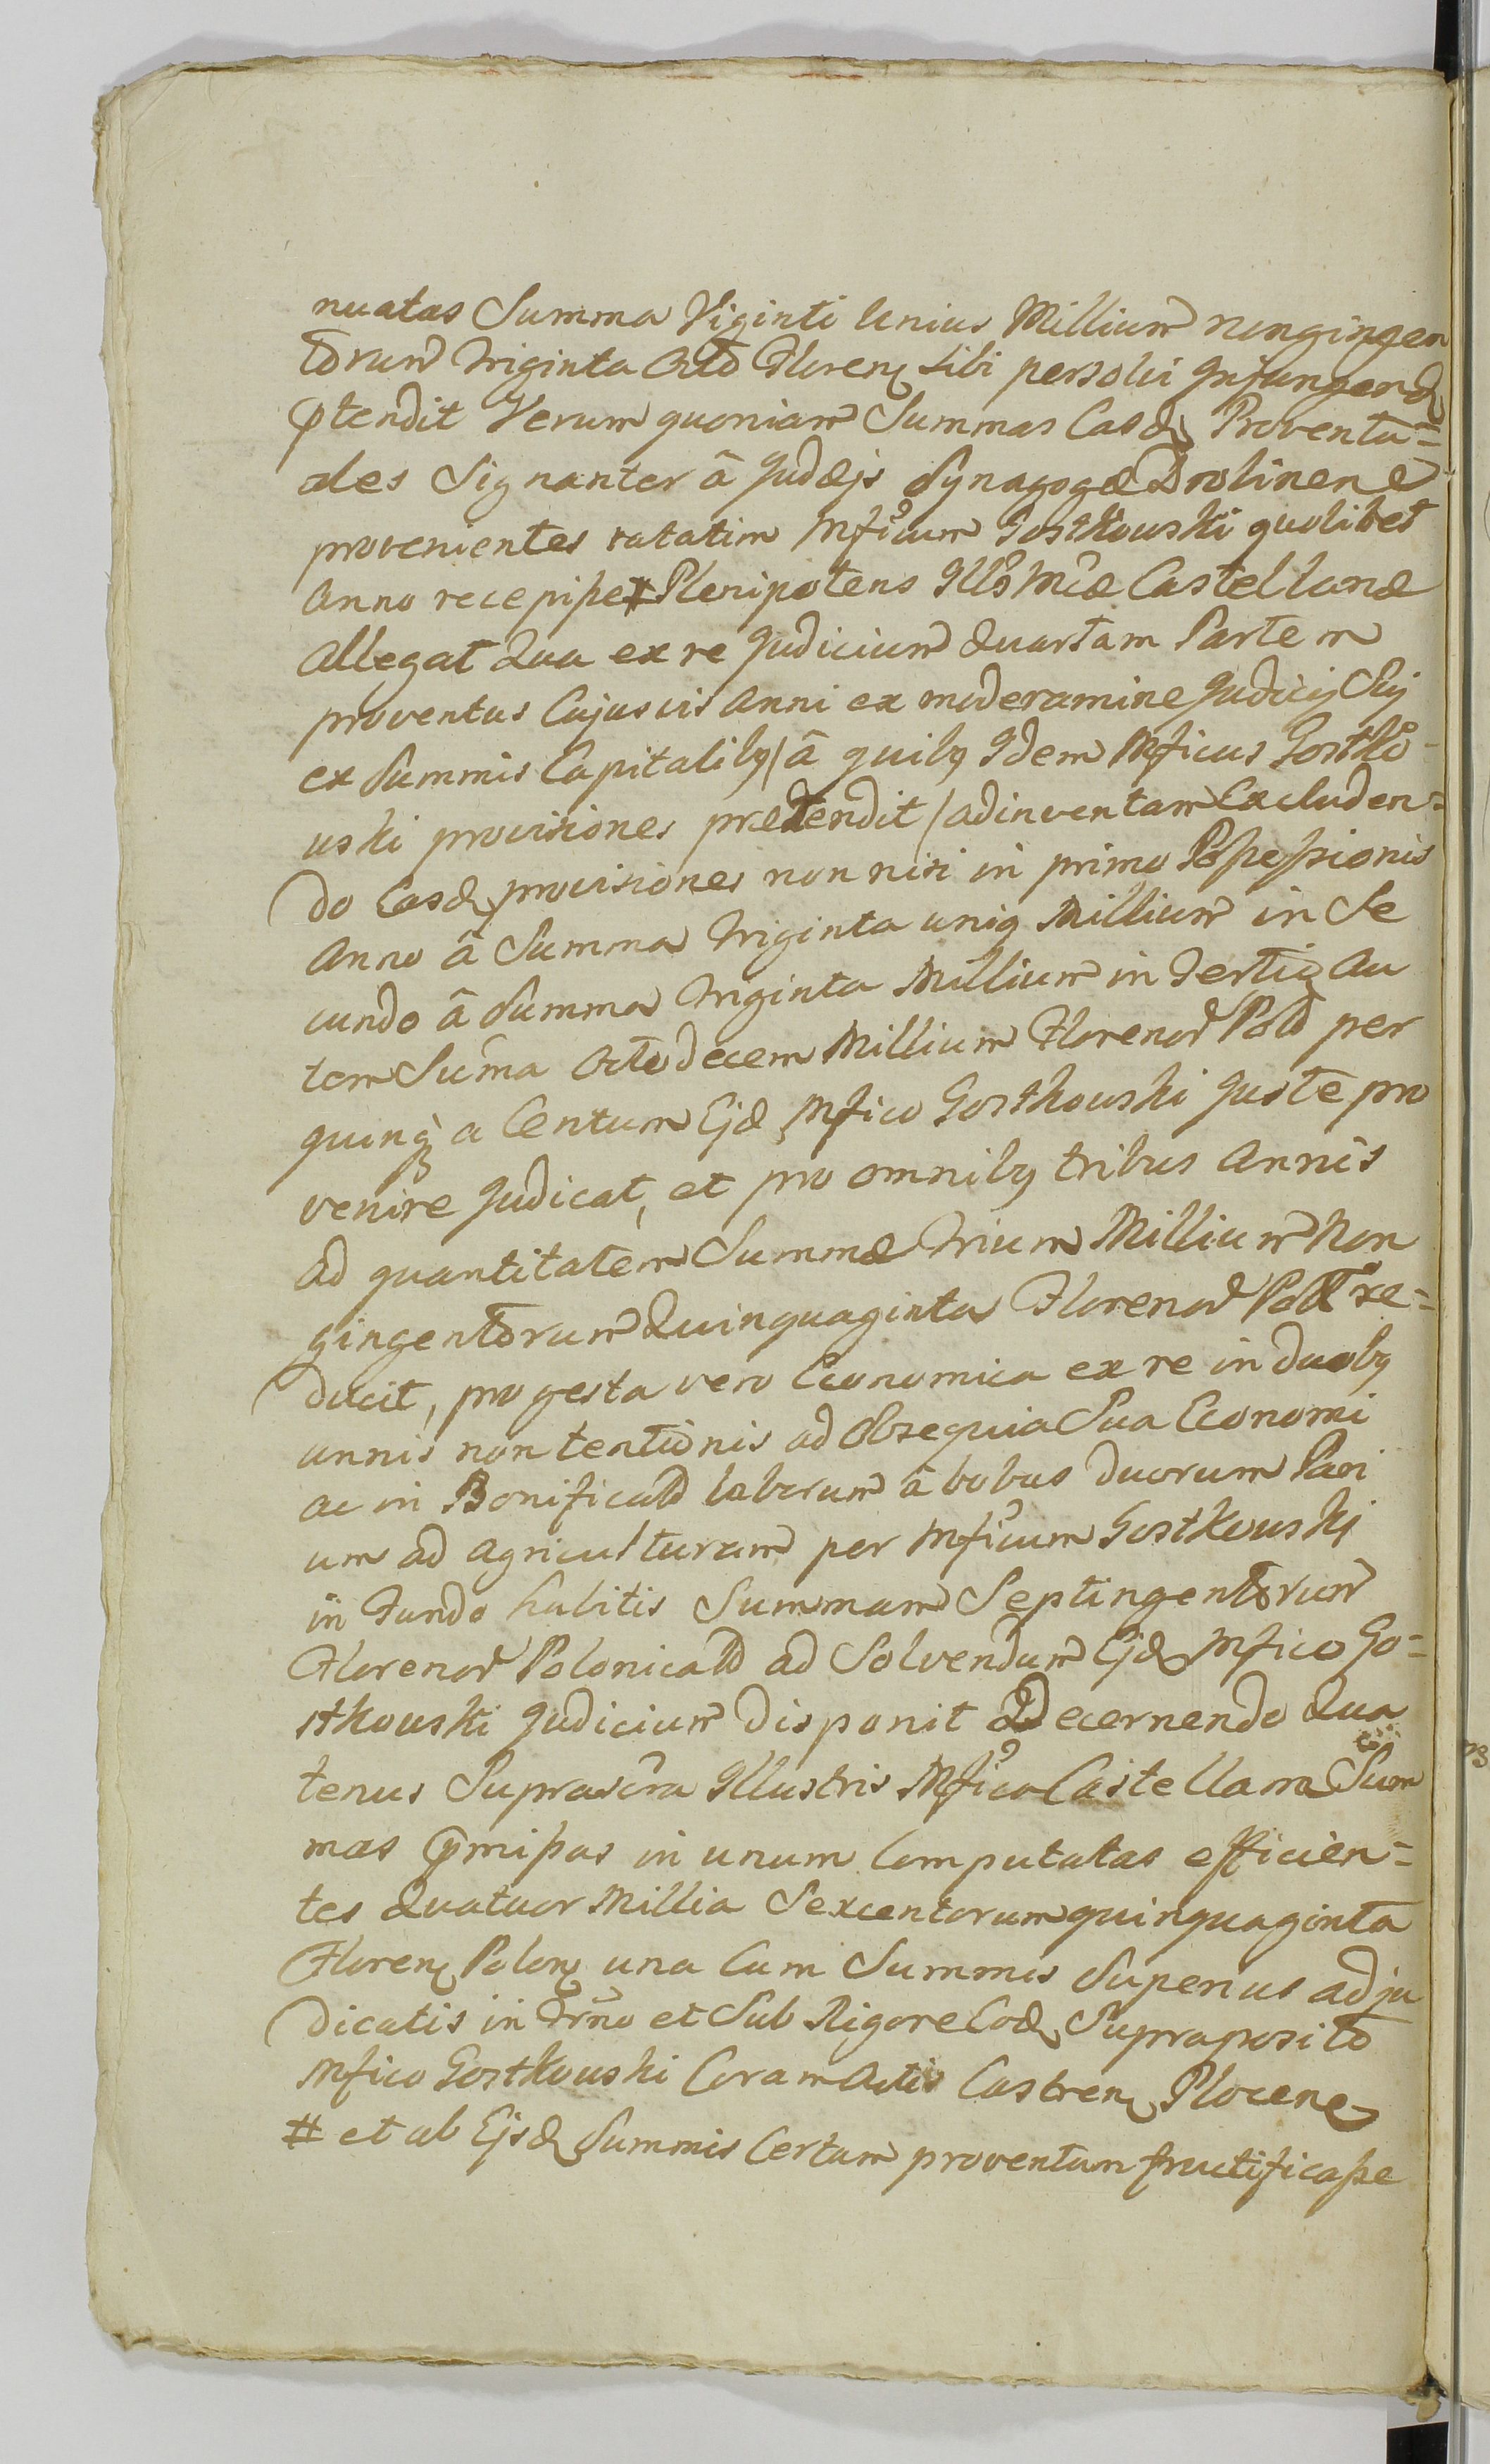 nuatas Summa Viginti Unius Millium nongingen
torum Triginta Octo Floren sibi persolvi Injungend
ptendit Verum quoniam Summas Easd Proventu=
ales Signanter â Judæis Synagogæ Drobinens
provenientes ratatim Mficum Gostkowski quolibet
Anno recepisse # Plenipotens Illris Mcæ Castellanæ
Allegat Qua ex re Judicium Quartam Partem
proventus Cujusvis Anni ex moderamine Judicij Sui
ex Summis Capitalibq / â quibq Idem Mficus Gostko-
wski provisiones prætendit / adinventam Excluden=
do Easd provisiones non nisi in primo Possessionis
Anno â Summa Triginta uniq Millium in Se
cundo â Summa Triginta Millium in Tertio Au
tem Suma Octodecem Millium Floren Pol per
quinq a Centum Ejd Mfico Gostkowski Juste pro
venire Judicat, et pro omnibq tribus Annis
ad quantitatem Summæ Trium Millium Non
gingentorum Quinquaginta Floren Pol re=
ducit, pro gesta vero Economica ex re in duobq
annis non tentionis ad Obsequia Sua Economi
ac in Bonificaõ laborum â bobus duorum Pari
um ad Agriculturam per Mficum Gostkowski
in Fundo habitis Summam Septingentorum
Floren Polonical ad Solvendum Ejd Mfico Go=
stkowski Judicium disponit Decernendo Qua
tenus Suprascra Illustris Mfica Castellana Sum
mas pmissas in unum Computatas efficien=
tes Quatuor Millia Sexcentorum quinquaginta
Floren Polon una Cum Summis Superius adju
dicatis in Trno et Sub Rigore Eod Supraposito
Mfico Gostkowski Coram Actis Castren Plocens
# et ab Ejsd Summis Certum proventum fructificasse